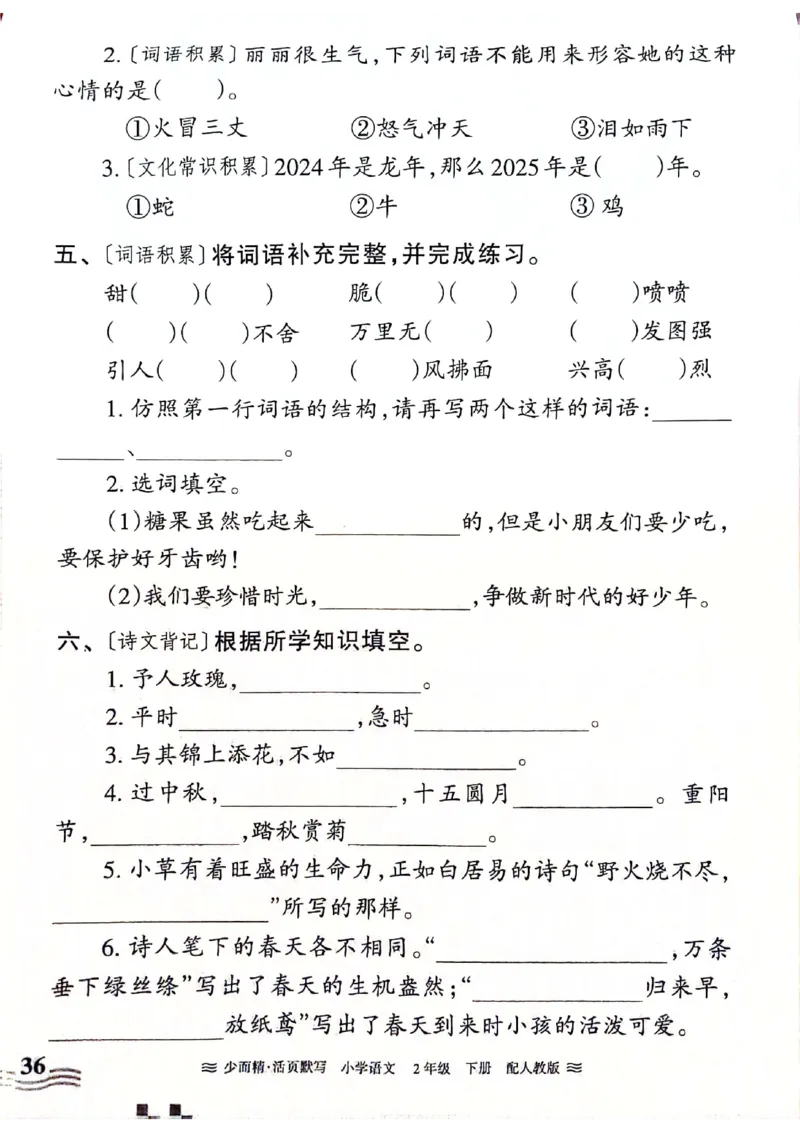 2.〔词语积累〕丽丽很生气,下列词语不能用来形容她的这种
心情的是(　　)。
①火冒三丈　②怒气冲天　③泪如雨下
3.〔文化常识积累〕2024年是龙年,那么2025年是(　　)年。
①蛇　②牛　③鸡
五、〔词语积累〕将词语补充完整,并完成练习。
甜(　　)(　　)　脆(　　)(　　)　(　　)喷喷
(　　)(　　)不舍　万里无(　　)　(　　)发图强
引人(　　)(　　)　(　　)风拂面　兴高(　　)烈
1.仿照第一行词语的结构,请再写两个这样的词语:______
______、____________。
2.选词填空。
(1)糖果虽然吃起来____________的,但是小朋友们要少吃,
要保护好牙齿哟!
(2)我们要珍惜时光,____________,争做新时代的好少年。
六、〔诗文背记〕根据所学知识填空。
1.予人玫瑰,______________。
2.平时______________,急时______________。
3.与其锦上添花,不如______________。
4.过中秋,______________,十五圆月____________。重阳
节,____________,踏秋赏菊____________。
5.小草有着旺盛的生命力,正如白居易的诗句“野火烧不尽,
__________________”所写的那样。
6.诗人笔下的春天各不相同。“__________________,万条
垂下绿丝绦”写出了春天的生机盎然;“______________归来早,
______________放纸鸢”写出了春天到来时小孩的活泼可爱。
36　少而精·活页默写　小学语文　2年级　下册　配人教版